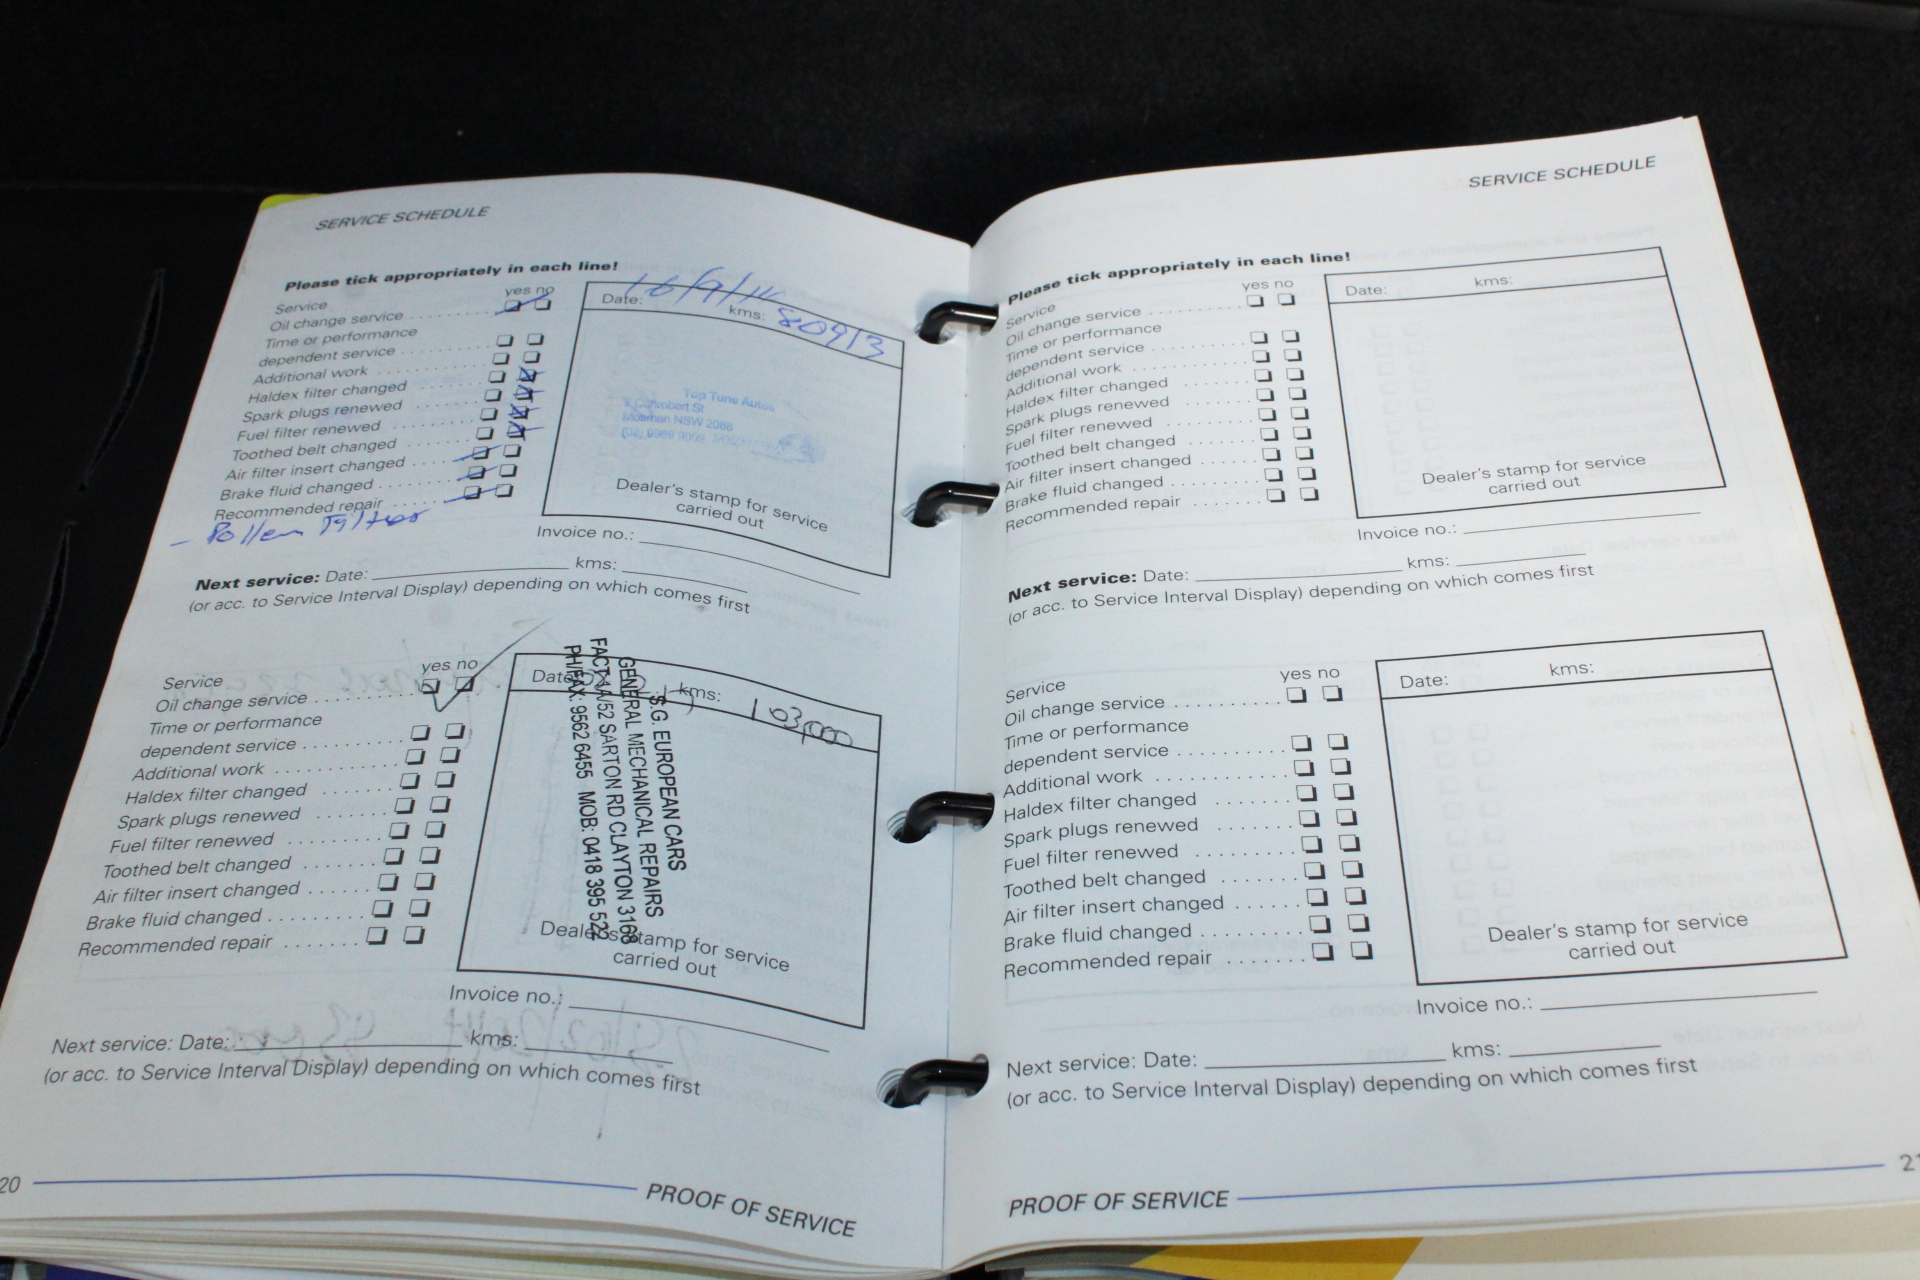 SERVICE SCHEDULE
Please tick appropriately in each line!
yes no
Service
Oil change service
Time or performance
dependent service
Additional work
Haldex filter changed
Spark plugs renewed
Fuel filter renewed
Toothed belt changed
Air filter insert changed
Brake fluid changed
Recommended repair
- Pollen
Date: 16/9/11
kms: 80913
Top Tune Autos
Mosman NSW 2088
(02) 9969 9009
Dealer's stamp for service
carried out
Invoice no.:
Next service: Date: kms:
(or acc. to Service Interval Display) depending on which comes first
yes no
Service
Oil change service
Time or performance
dependent service
Additional work
Haldex filter changed
Spark plugs renewed
Fuel filter renewed
Toothed belt changed
Air filter insert changed
Brake fluid changed
Recommended repair
Date: kms: 103,000
S.G. EUROPEAN CARS
GENERAL MECHANICAL REPAIRS
FACT 4A/52 SARTON RD CLAYTON 3168
PH/FAX: 9562 6455 MOB: 0418 395 522
Dealer's stamp for service
carried out
Invoice no.:
Next service: Date: kms:
(or acc. to Service Interval Display) depending on which comes first
20
PROOF OF SERVICE
SERVICE SCHEDULE
Please tick appropriately in each line!
yes no
Service
Oil change service
Time or performance
dependent service
Additional work
Haldex filter changed
Spark plugs renewed
Fuel filter renewed
Toothed belt changed
Air filter insert changed
Brake fluid changed
Recommended repair
Date: kms:
Dealer's stamp for service
carried out
Invoice no.:
Next service: Date: kms:
(or acc. to Service Interval Display) depending on which comes first
yes no
Service
Oil change service
Time or performance
dependent service
Additional work
Haldex filter changed
Spark plugs renewed
Fuel filter renewed
Toothed belt changed
Air filter insert changed
Brake fluid changed
Recommended repair
Date: kms:
Dealer's stamp for service
carried out
Invoice no.:
Next service: Date: kms:
(or acc. to Service Interval Display) depending on which comes first
PROOF OF SERVICE
21